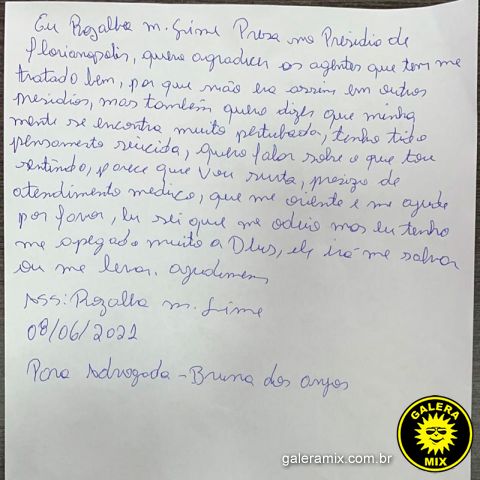 Eu Rozalba m. Grime Presa no Presidio de
Florianopolis, quero agradecer os agentes que tem me
tratado bem, por que não era assim em outros
presidios, mas também quero dizer que minha
mente se encontra muito pertubada, tenho tido
pensamento suicida, quero falar sobre o que tou
sentindo, parece que vou surta, preciso de
atendimento medico, que me oriente e me ajude
por favor, eu sei que me odeio mas eu tenho
me apegado muito a Deus, ele irá me salvar
ou me levar. ajudemem
Ass: Rozalba m. Grime
08/06/2021
Para Advogada - Bruna dos anjos
GALERA
MIX
galeramix.com.br